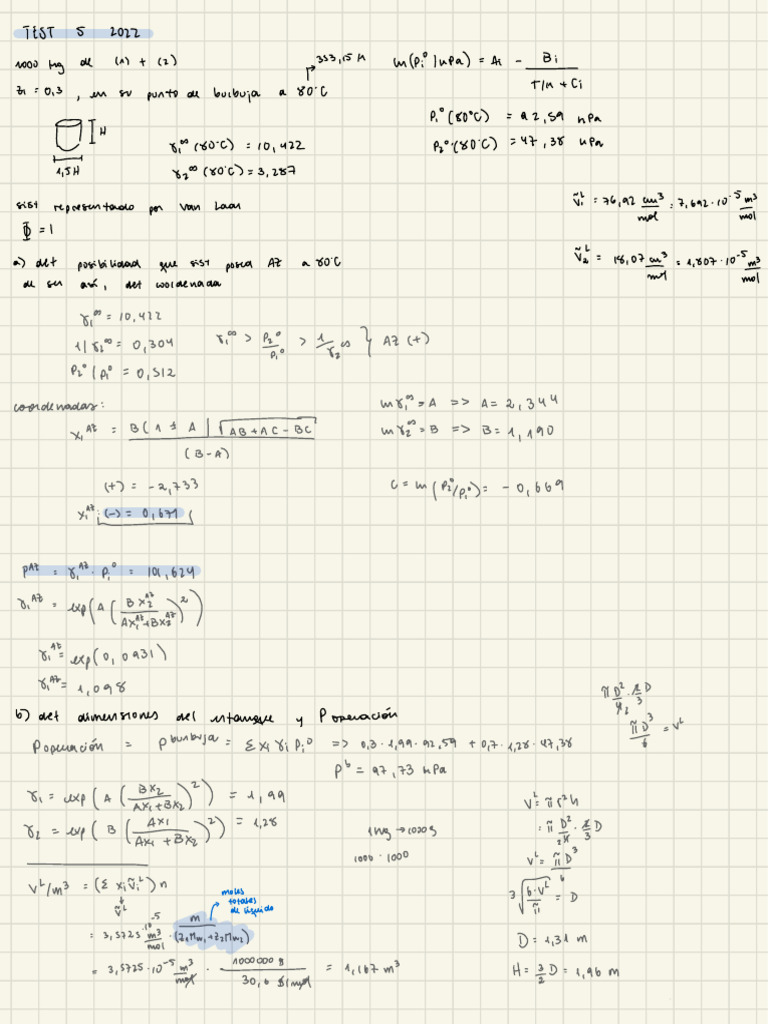 TEST 5 2022
1000 kg de (1) + (2)
Zi = 0,3 , en su punto de burbuja a 80°C
353,15 K
ln(Pi°/kPa) = Ai - Bi / (T/K + Ci)
P1°(80°C) = 92,59 kPa
P2°(80°C) = 47,38 kPa
H
1,5H
γ1∞ (80°C) = 10,422
γ2∞ (80°C) = 3,287
sist representado por Van Laar
Φ = 1
Ṽ1ᴸ = 76,92 cm³/mol = 7,692·10⁻⁵ m³/mol
Ṽ2ᴸ = 18,07 cm³/mol = 1,807·10⁻⁵ m³/mol
a) det posibilidad que sist posea AZ a 80°C
de ser así, det coordenada
γ1∞ = 10,422
1/γ2∞ = 0,304
P2°/P1° = 0,512
γ1∞ > P2°/P1° > 1/γ2∞ } AZ (+)
coordenadas:
x1ᴬᶻ = B(A ± A | √(AB + AC - BC) / (B-A)
(+) = -2,733
x1ᴬᶻ: (-) = 0,671
ln γ1∞ = A => A = 2,344
ln γ2∞ = B => B = 1,190
C = ln (P2°/P1°) = -0,669
Pᴬᶻ = γ1ᴬᶻ · P1° = 101,624
γ1ᴬᶻ = exp(A (BX2ᴬᶻ / (AX1ᴬᶻ + BX2ᴬᶻ))²)
γ1ᴬᶻ = exp(0,0931)
γ1ᴬᶻ = 1,098
b) det dimensiones del estanque y Poperación
Poperación = Pburbuja = Σ xi γi Pi° => 0,3 · 1,99 · 92,59 + 0,7 · 1,28 · 47,38
Pᵇ = 97,73 kPa
γ1 = exp(A (BX2 / (AX1 + BX2))²) = 1,99
γ2 = exp(B (AX1 / (AX1 + BX2))²) = 1,28
1 kg → 1000 g
1000 · 1000
Vᴸ/m³ = (Σ xi Ṽiᴸ) n
Ṽᴸ
moles
totales
de líquido
= 3,5725·10⁻⁵ m³/mol · m / (Z1Mw1 + Z2Mw2)
= 3,5725·10⁻⁵ m³/mol · 1000000 g / 30,6 g/mol = 1,167 m³
π D²/4 · 2/3 D
πD³/6 = Vᴸ
Vᴸ = π r² h
= π D²/4 · 2/3 D
Vᴸ = π D³/6
³√(6·Vᴸ/π) = D
D = 1,31 m
H = 3/2 D = 1,96 m